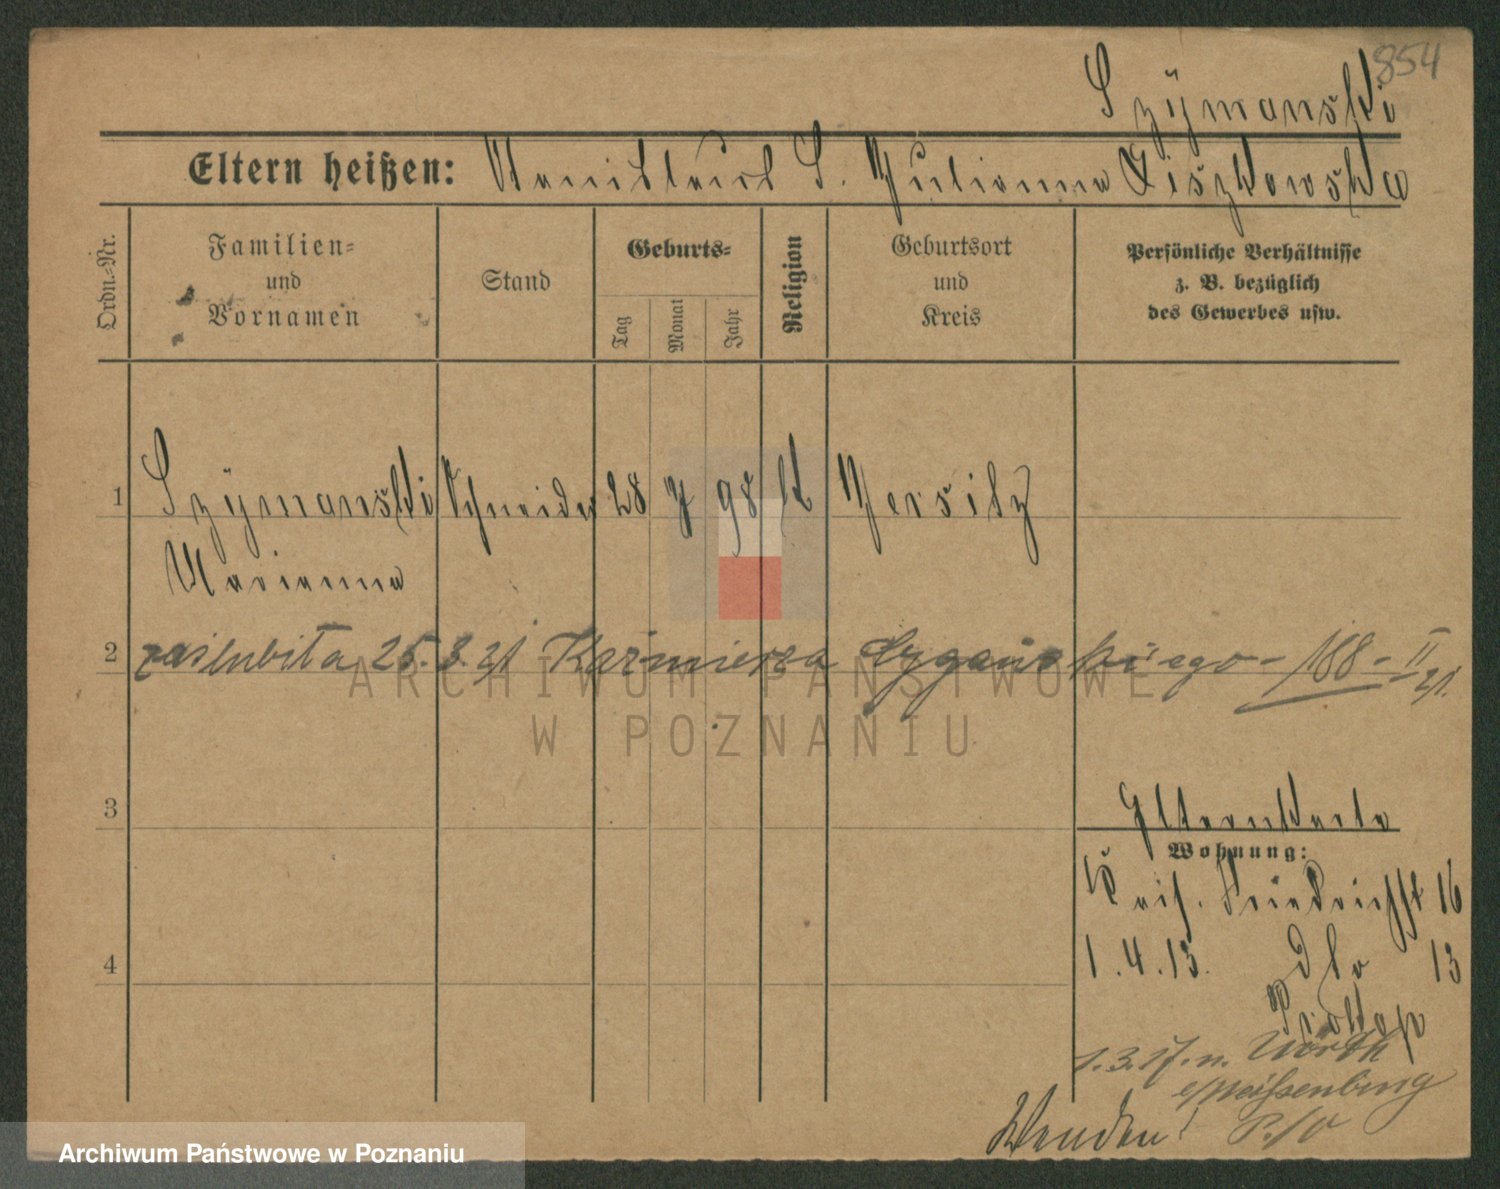 854
Szymanski
Eltern heißen: Stanislaus S. Julianna Liszkowska
Ordn.-Nr.
Familien-
und
Vornamen
Stand
Geburts-
Tag
Monat
Jahr
Religion
Geburtsort
und
Kreis
Persönliche Verhältnisse
z. B. bezüglich
des Gewerbes usw.
1 Szymanski Schneider 28 7 98 kt Jersitz
Marianna
2 zaślubiła 25.3.21 Kaźmierza Cygańskiego - 188 - II
21.
3
Elternkarte
Wohnung:
Kais. Friedrichst 16
4
1.4.13. dto 13
1.3.17. n. Wörth
Weißenburg
Wenden!
ARCHIWUM PAŃSTWOWE
W POZNANIU
Archiwum Państwowe w Poznaniu